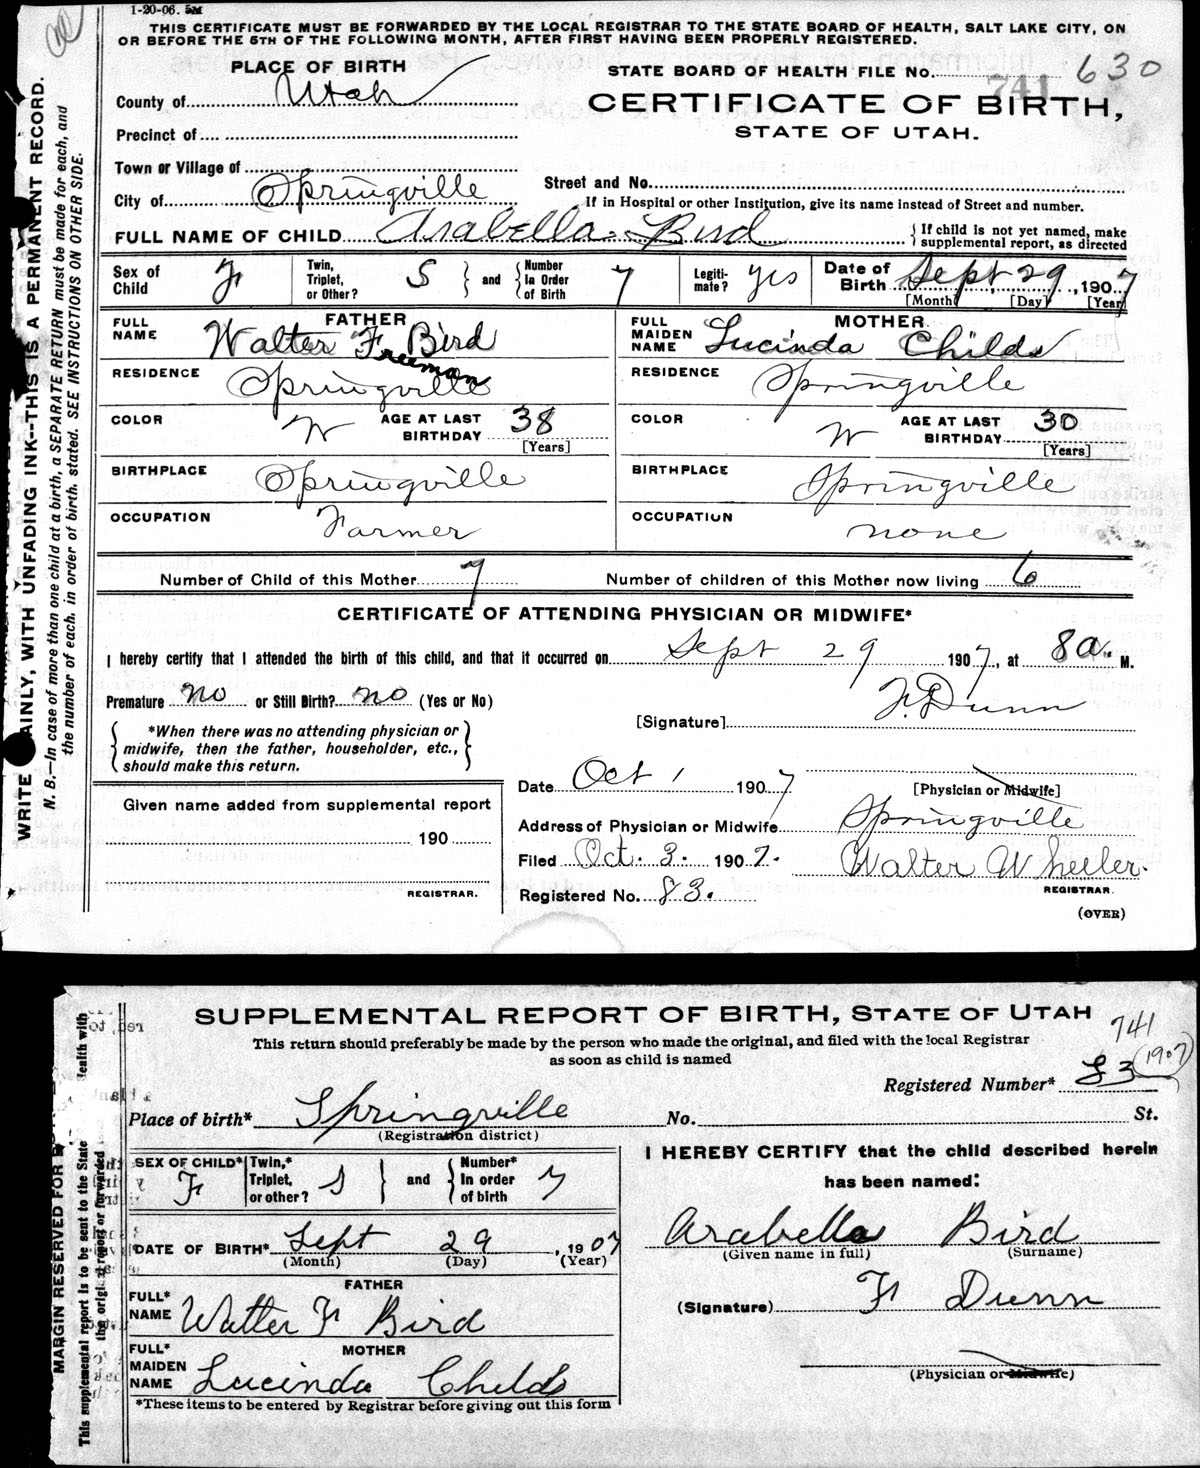 1-20-06. 5M
THIS CERTIFICATE MUST BE FORWARDED BY THE LOCAL REGISTRAR TO THE STATE BOARD OF HEALTH, SALT LAKE CITY, ON
OR BEFORE THE 5TH OF THE FOLLOWING MONTH, AFTER FIRST HAVING BEEN PROPERLY REGISTERED.
PLACE OF BIRTH
STATE BOARD OF HEALTH FILE No. 741 630
County of Utah
CERTIFICATE OF BIRTH,
STATE OF UTAH.
Precinct of
Town or Village of
City of Springville
Street and No.
If in Hospital or other Institution, give its name instead of Street and number.
FULL NAME OF CHILD Arabella Bird
{ If child is not yet named, make
supplemental report, as directed
Sex of Child F
Twin, Triplet, or Other? S } and { Number In Order of Birth 7
Legiti-mate? yes
Date of Birth Sept 29, 1907
[Month] [Day] [Year]
FATHER
FULL NAME Walter F Bird
Freeman
RESIDENCE Springville
COLOR W
AGE AT LAST BIRTHDAY 38
[Years]
BIRTHPLACE Springville
OCCUPATION Farmer
MOTHER
FULL MAIDEN NAME Lucinda Childs
RESIDENCE Springville
COLOR W
AGE AT LAST BIRTHDAY 30
[Years]
BIRTHPLACE Springville
OCCUPATION none
Number of Child of this Mother 7
Number of children of this Mother now living 6
CERTIFICATE OF ATTENDING PHYSICIAN OR MIDWIFE*
I hereby certify that I attended the birth of this child, and that it occurred on Sept 29 1907, at 8 a. M.
Premature no or Still Birth? no (Yes or No)
[Signature] F. Dunn
{ *When there was no attending physician or
midwife, then the father, householder, etc.,
should make this return. }
Date Oct 1 1907
[Physician or Midwife]
Given name added from supplemental report
190
REGISTRAR.
Address of Physician or Midwife Springville
Filed Oct. 3. 1907. Walter Wheeler.
REGISTRAR.
Registered No. 83.
(OVER)
WRITE AINLY, WITH UNFADING INK--THIS IS A PERMANENT RECORD.
N. B.—In case of more than one child at a birth, a SEPARATE RETURN must be made for each, and
the number of each, in order of birth, stated. SEE INSTRUCTIONS ON OTHER SIDE.
SUPPLEMENTAL REPORT OF BIRTH, STATE OF UTAH
741
This return should preferably be made by the person who made the original, and filed with the local Registrar
as soon as child is named
(1907)
Registered Number* 83
Place of birth* Springville
No. St.
(Registration district)
SEX OF CHILD* F
Twin,* Triplet, or other? S } and { Number* In order of birth 7
DATE OF BIRTH* Sept 29, 1907
(Month) (Day) (Year)
FATHER
FULL* NAME Walter F Bird
MOTHER
FULL* MAIDEN NAME Lucinda Childs
*These items to be entered by Registrar before giving out this form
I HEREBY CERTIFY that the child described herein
has been named:
Arabella Bird
(Given name in full) (Surname)
(Signature) F Dunn
(Physician or Midwife)
MARGIN RESERVED FOR
This supplemental report is to be sent to the State Health with
the original report or forwarded